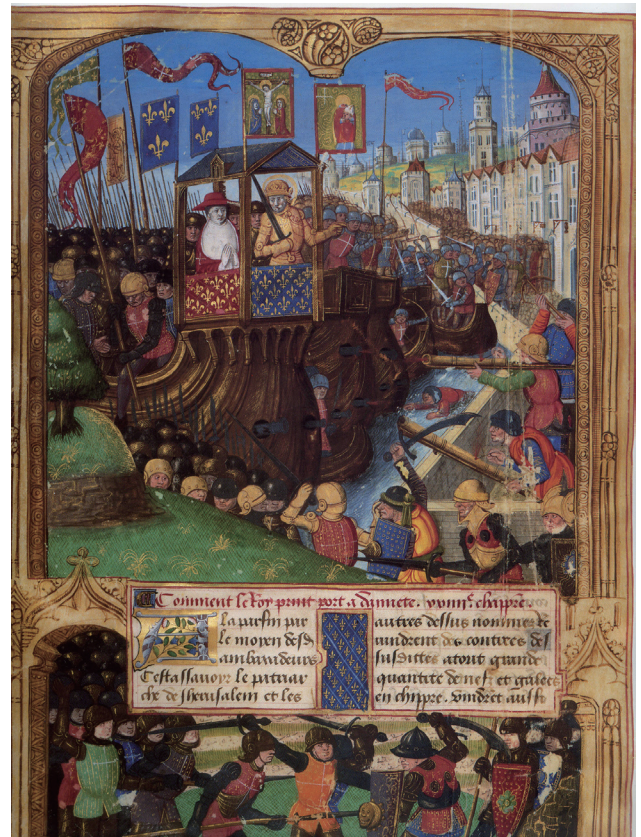 Comment le Roy print port a damiete. xviiie. chappre.
A la parfin par
le moyen desd
ambaxadeurs
Cestassavoir le patriar
che de Jherusalem et les
autres dessus nommez
vindrent des contrees des
susdittes atout grande
quantite de nef. et galees
en chippre. vindret aussi